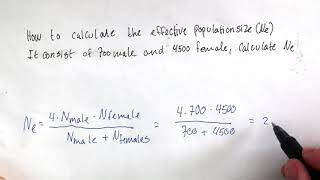 How to calculate the effective population size (Ne)
It consist of 700 male and 4500 female, Calculate Ne
Ne = 4. Nmale . Nfemale / Nmale + Nfemales = 4. 700 . 4500 / 700 + 4500 = 2